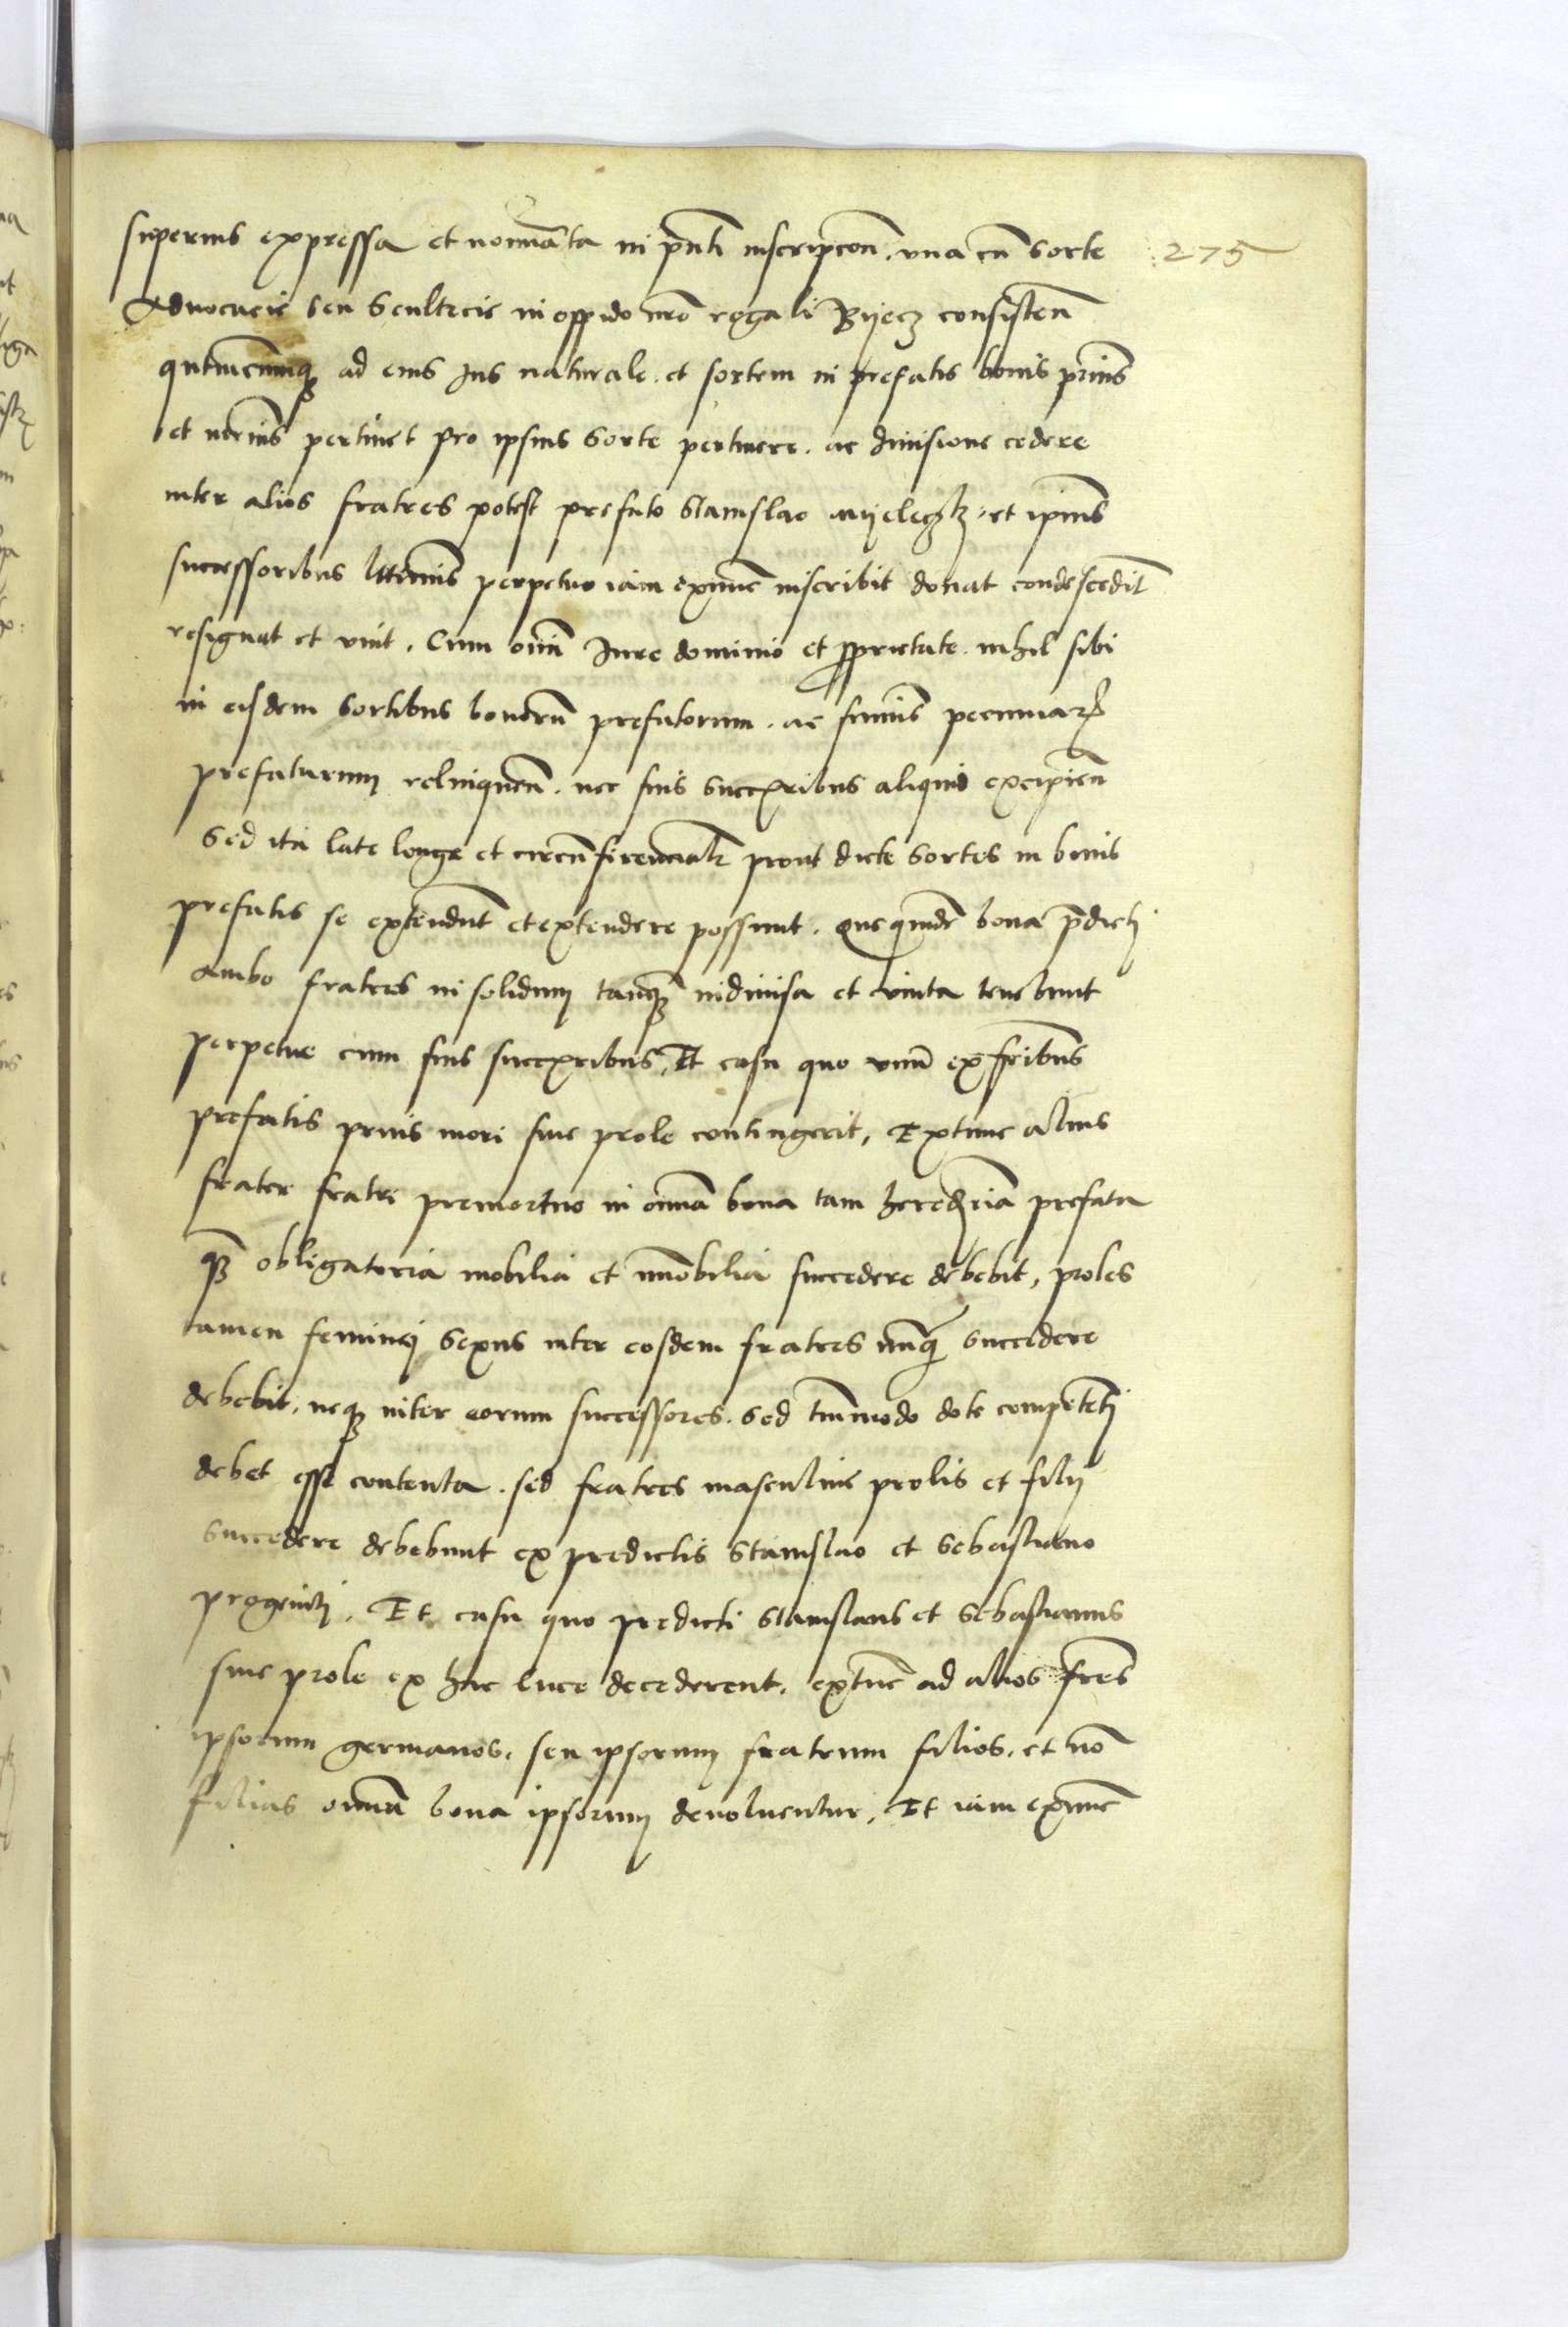 superius expressa et nomiata in pnti inscripcon. vna cu sorte 275
Advocacie seu Scultecie in oppido nro regali Byecz consisten
qntucunq ad eius Jus naturale. et sortem in prefatis bonis prius
et pertinet pro ipsius sorte pertinere. ac diuisione cedere
inter alios fratres potest prefato Stanislao et ipius
successoribus lttimis perpetuo iam exnunc inscribit donat condescedit
resignat et vnit. Cum omi Jure dominio et proprietate. nihil sibi
in eisdem sortibus bonoru prefatorum. ac sumis pecuniar
prefatarum relinquen. nec suis succribus aliquid excipien
Sed ita late longe et circuferencialr prout dicte sortes in bonis
prefatis se extendut et extendere possunt. Que quide bona pdicti
ambo fratres in solidum tanq indiuisa et vnita tenebunt
perpetue cum suis succribus. Et casu quo vnu ex fribus
prefatis prius mori sine prole contingerit, Extunc alius
frater fratri premortuo in omia bona tam heredria prefata
q obligatoria mobilia et imobilia succedere debebit, proles
tamen feminei sexus inter eosdem fratres nunq succedere
debebit, neq inter eorum successores. sed tmmodo dote competeti
debet esse contenta. sed fratres masculine prolis et filij
succedere debebunt ex predictis Stanislao et Sebastiano
progeniti. Et casu quo predicti Stanislaus et Sebastianus
sine prole ex hac luce decederent. extuc ad alios fres
ipsorum germanos. seu ipsorum fratrum filios. et no
filias omia bona ipsorum deuoluentur. Et iam exnunc